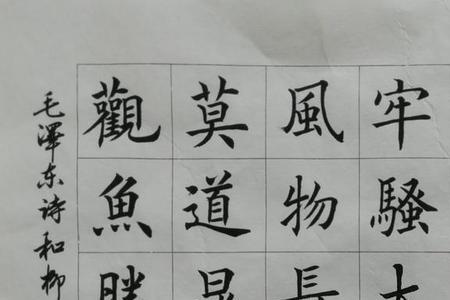 牢騷太
風物長
莫道昆
觀魚勝
毛澤东诗和柳